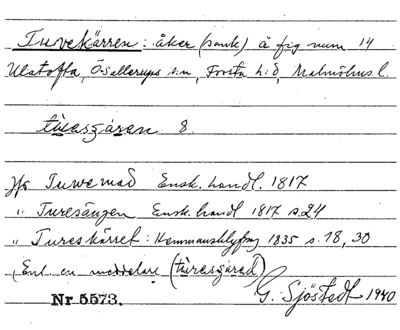 Tuvekärren: åker (sank) å fig num 14
Ulatofta, Ösellerups s:n, Frosta h:d, Malmöhus l.
tùvasɟáran 8.
jfr Tuwemad Ensk. handl. 1817
" Turesängen Ensk. handl 1817 s.24
" Tureskärret: Hemmansklyfng 1835 s. 18, 30
Enl. en meddelare
G. Sjöstedt 1940
Nr 5573.